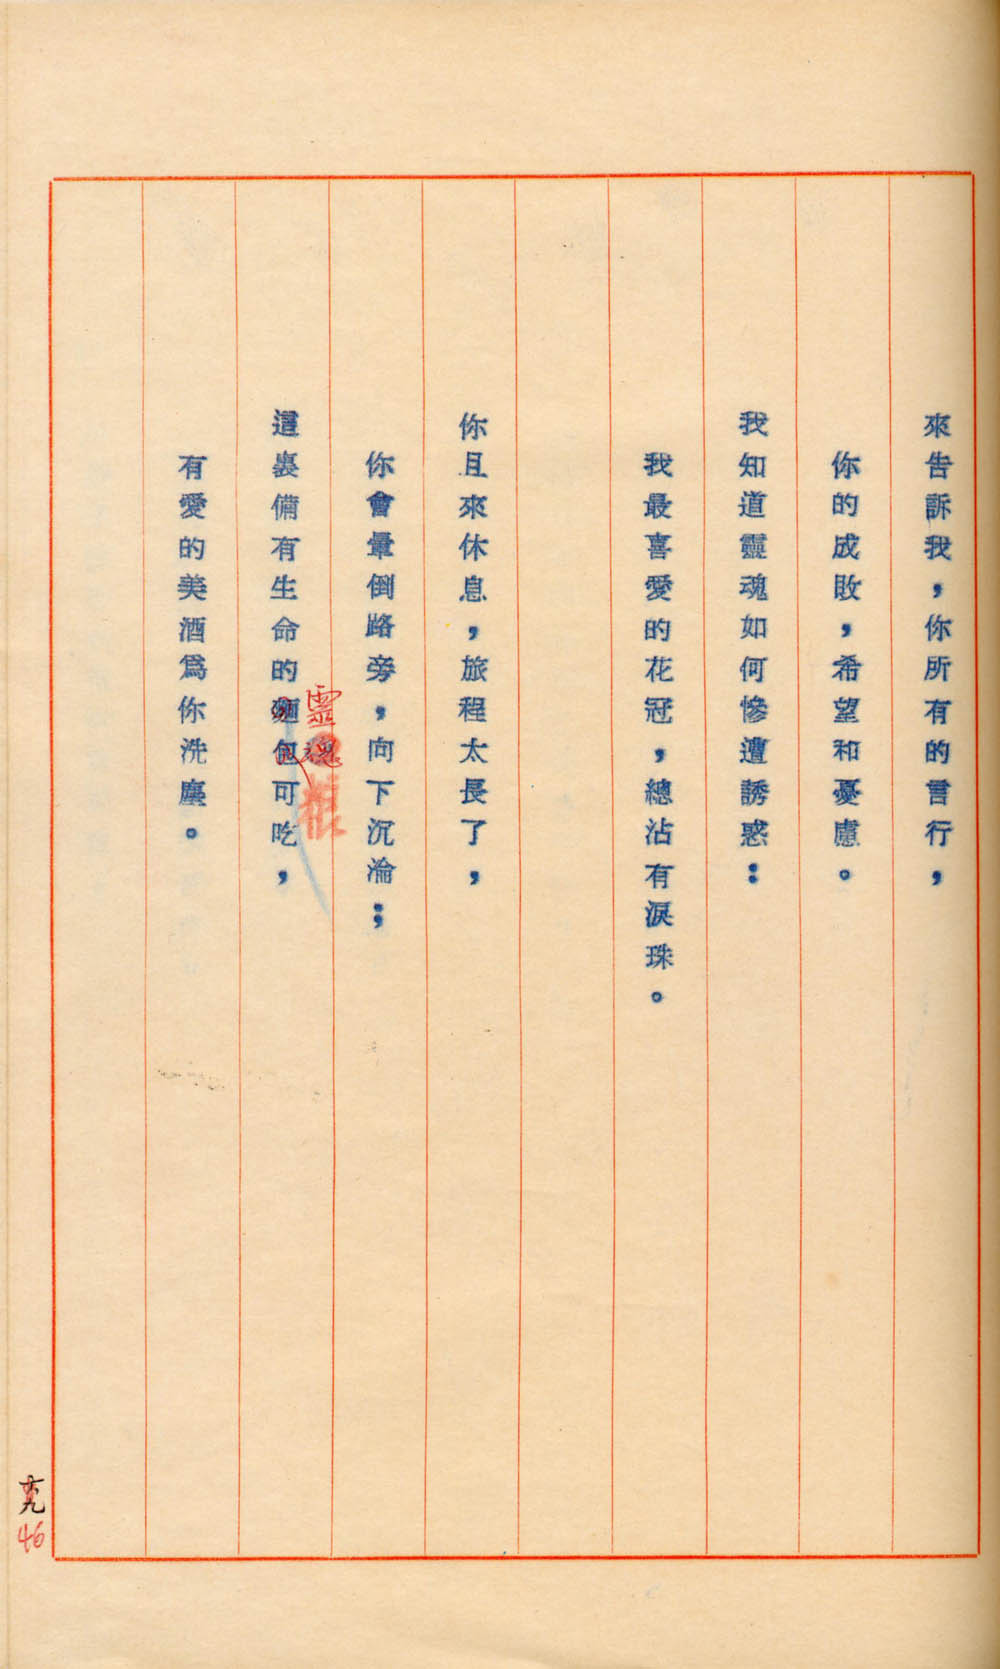 來告訴我，你所有的言行，
你的成敗，希望和憂慮。
我知道靈魂如何慘遭誘惑：
我最喜愛的花冠，總沾有淚珠。
你且來休息，旅程太長了，
你會暈倒路旁，向下沉淪；
靈魂糧
這裏備有生命的麵包可吃，
有愛的美酒為你洗塵。
46